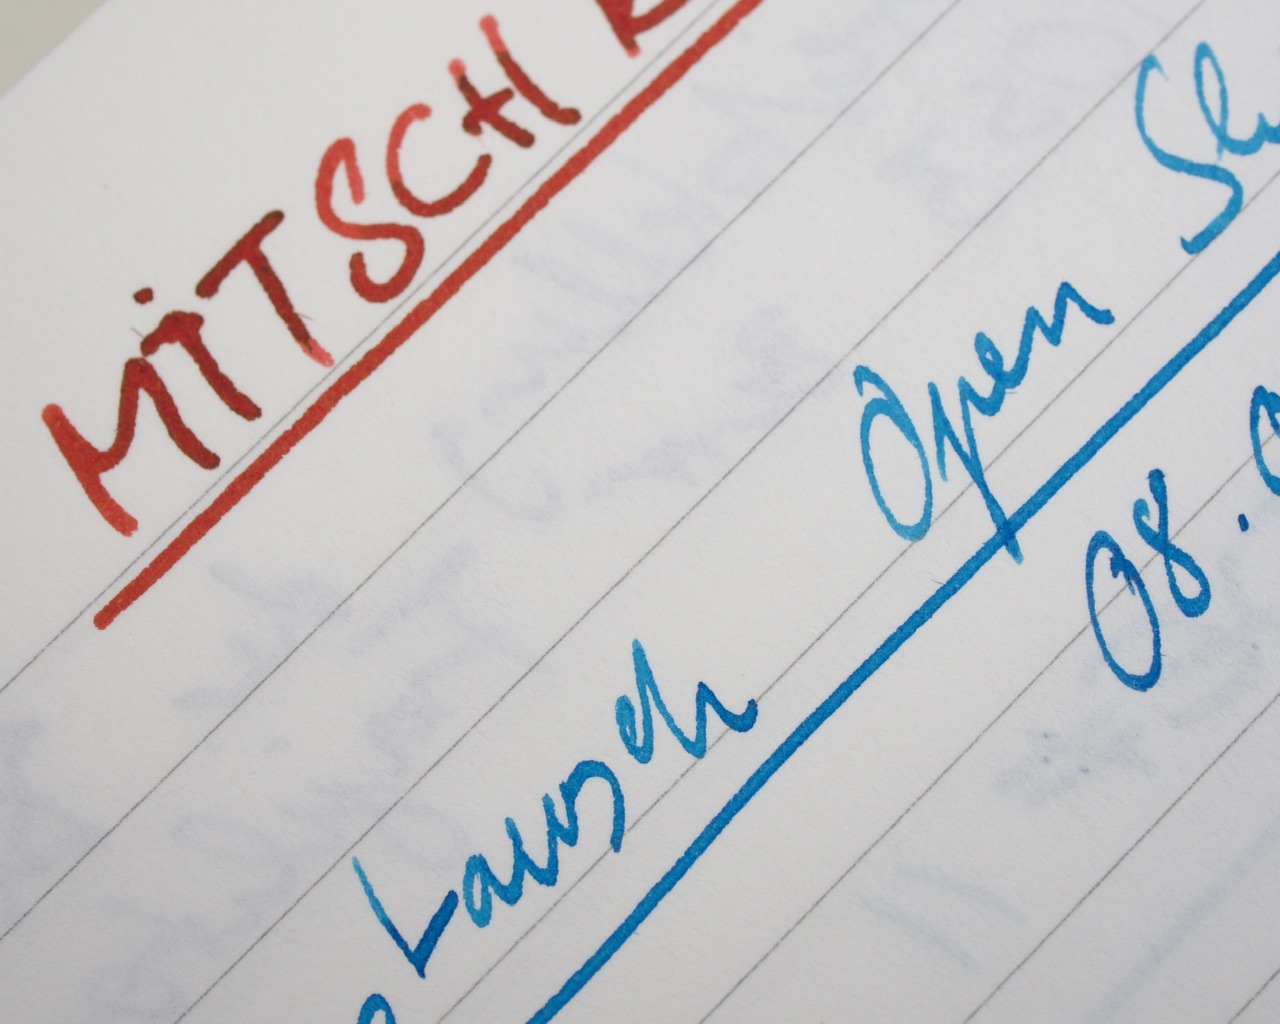 MITSCH
Lausch Open
08.